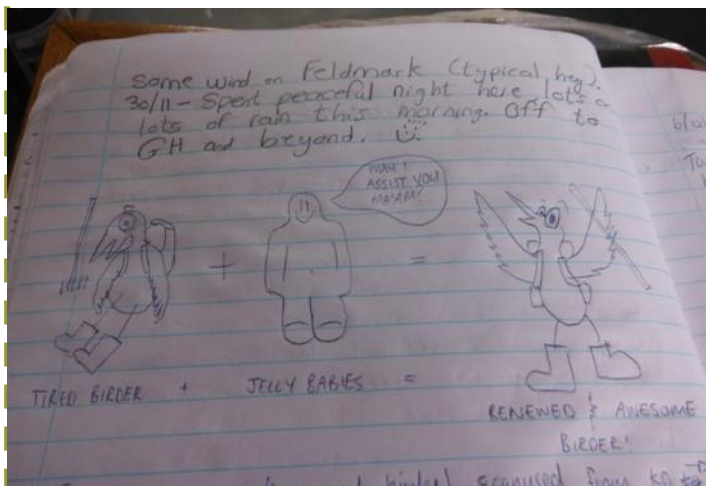 Some wind on Feldmark (typical, hey).
30/11 - Spent peaceful night here lots
lots of rain this morning. Off to
GH and beyond.
MAY I
ASSIST YOU
MA'AM?
+
=
TIRED BIRDER + JELLY BABIES =
RENEWED & AWESOME
BIRDER!
from